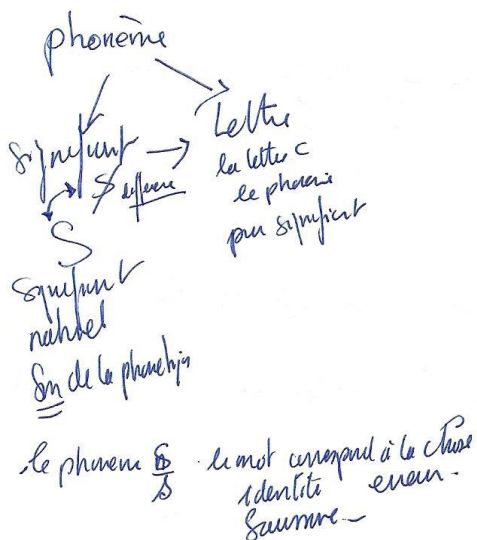 phonème
signifiant → Lettre
$ différence
la lettre C
le phonème
pur signifiant
S
signifiant
naturel
Son de la phonétique
le phonème S/s . le mot correspond à la chose
identité erreur.
Saussure